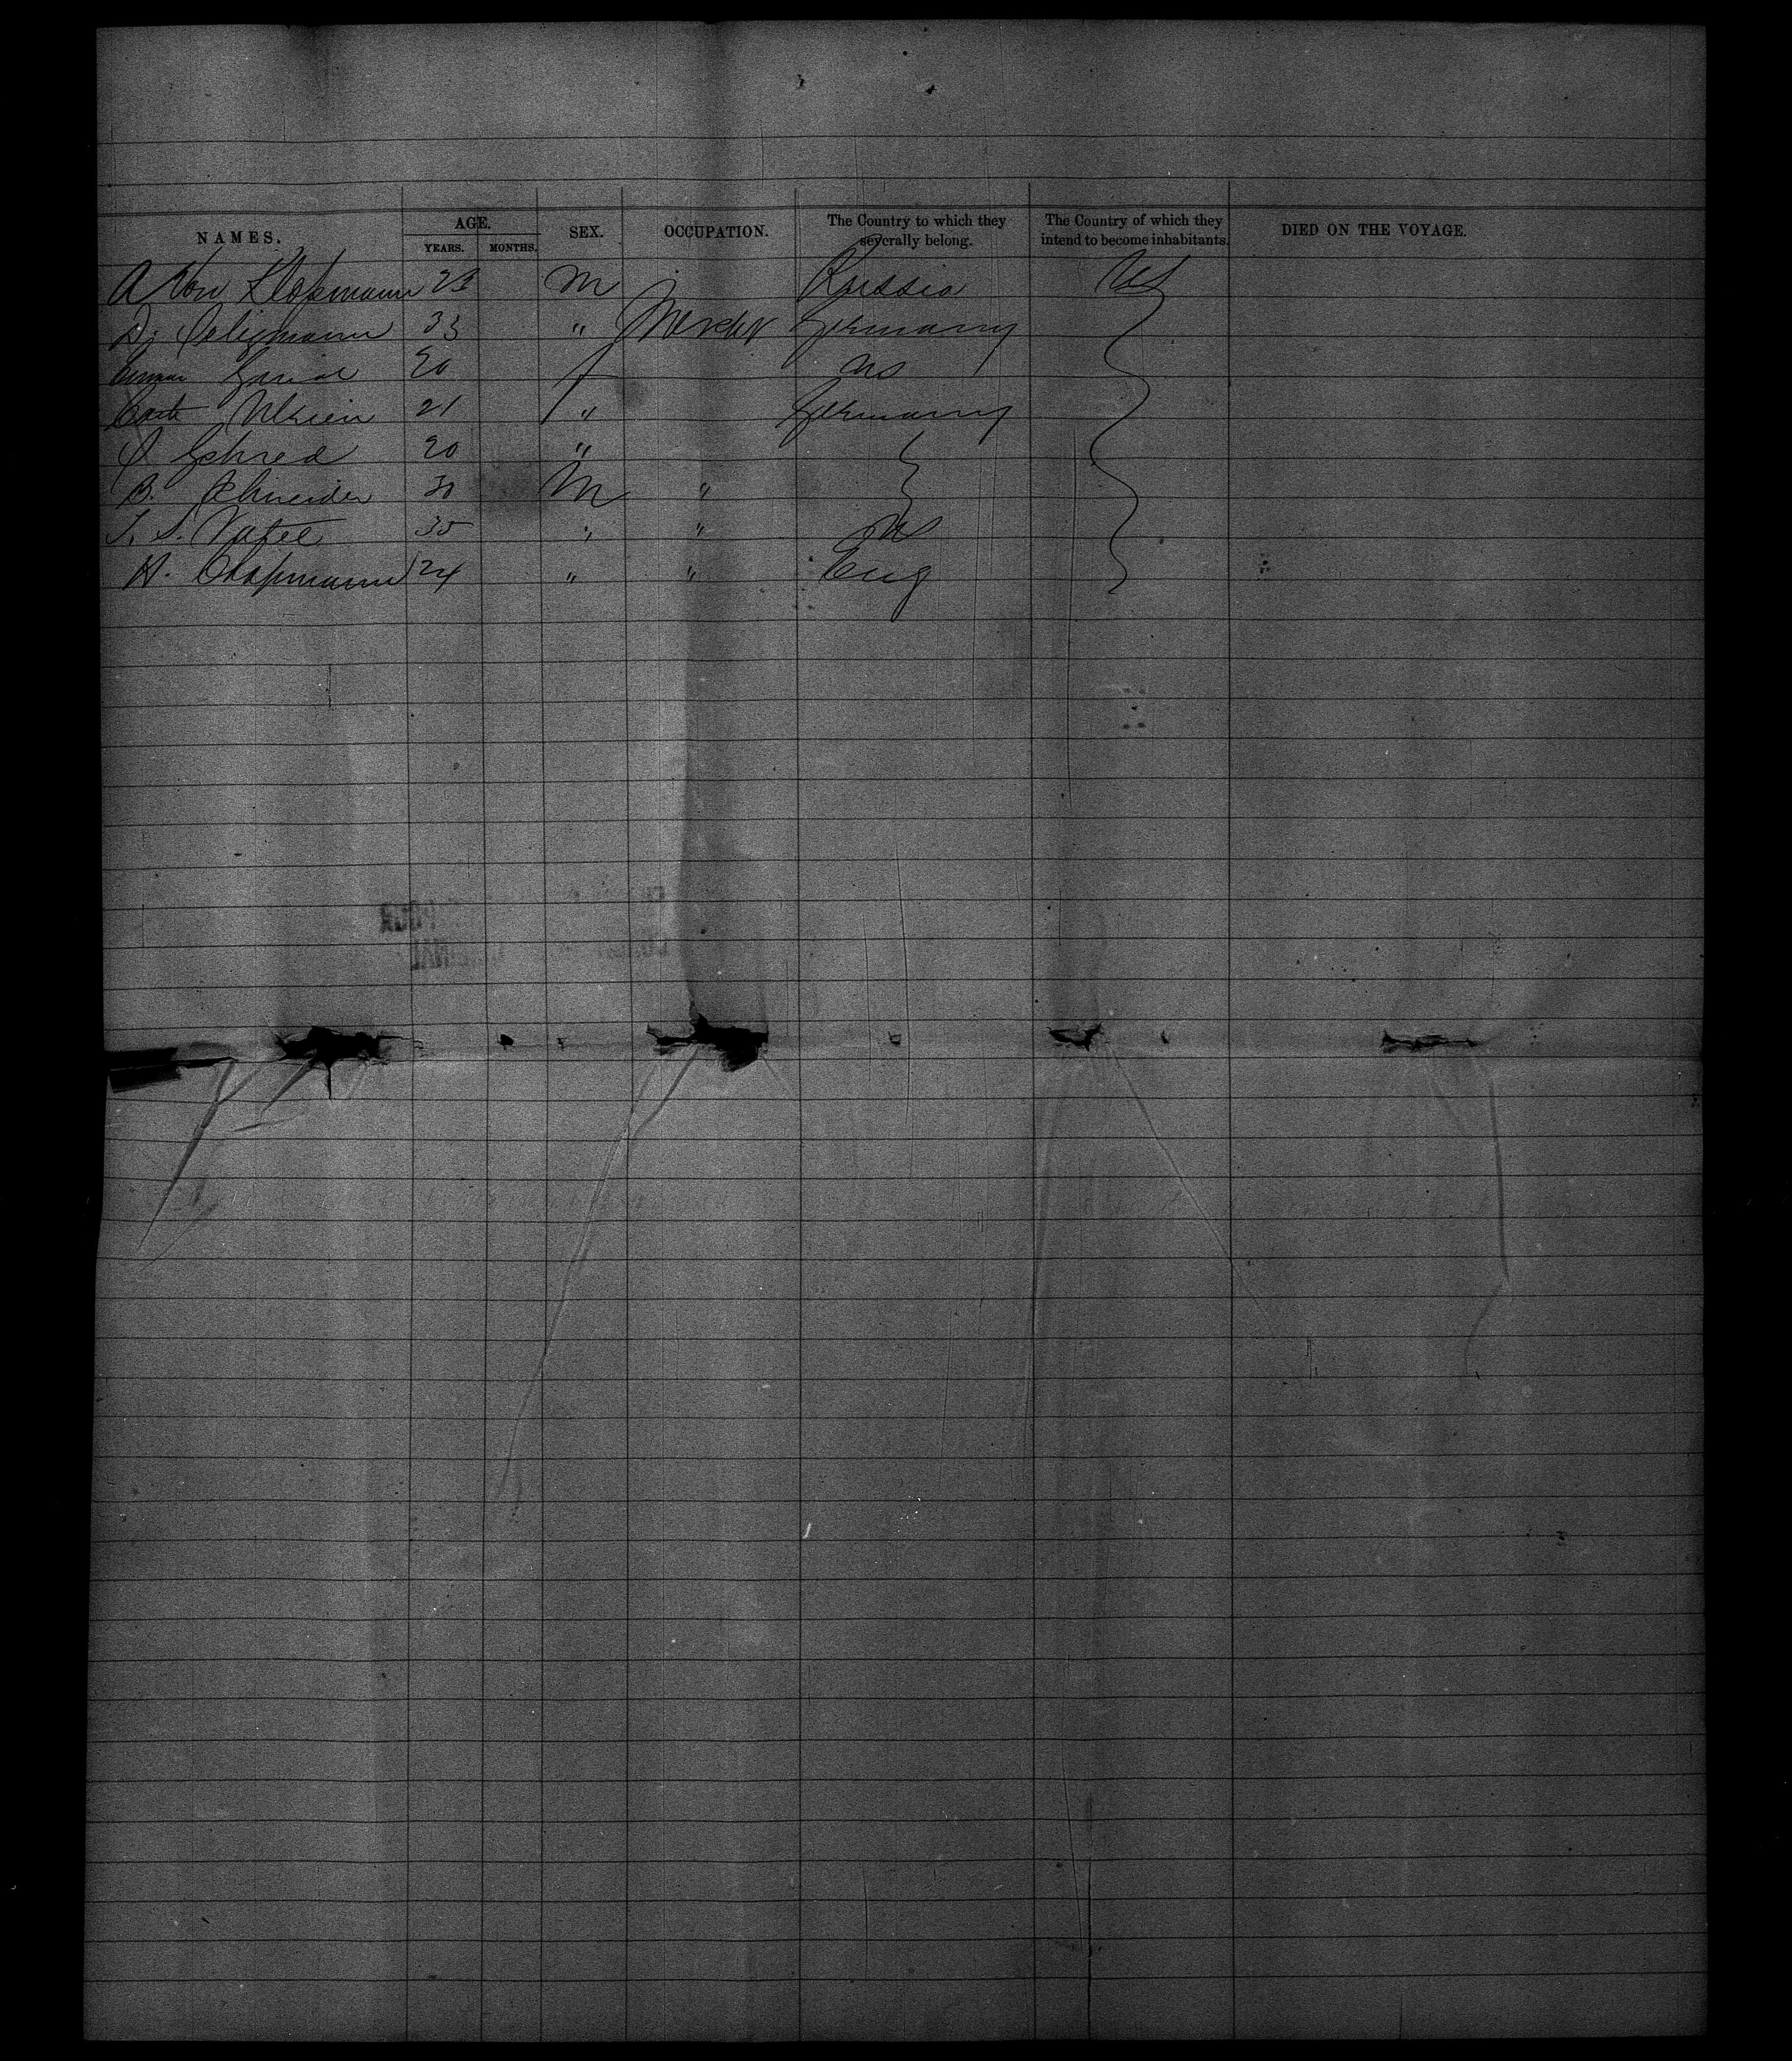 NAMES. AGE. SEX. OCCUPATION. The Country to which they severally belong. The Country of which they intend to become inhabitants. DIED ON THE VOYAGE.
YEARS. MONTHS.
A Von Klopmann 23 M Russia US
D. Seligmann 33 " Merchr Germany
20 f US
21 " Germany
20 "
B. Schneider 30 M "
35 " " US
H. Chapmann 24 " " Eng